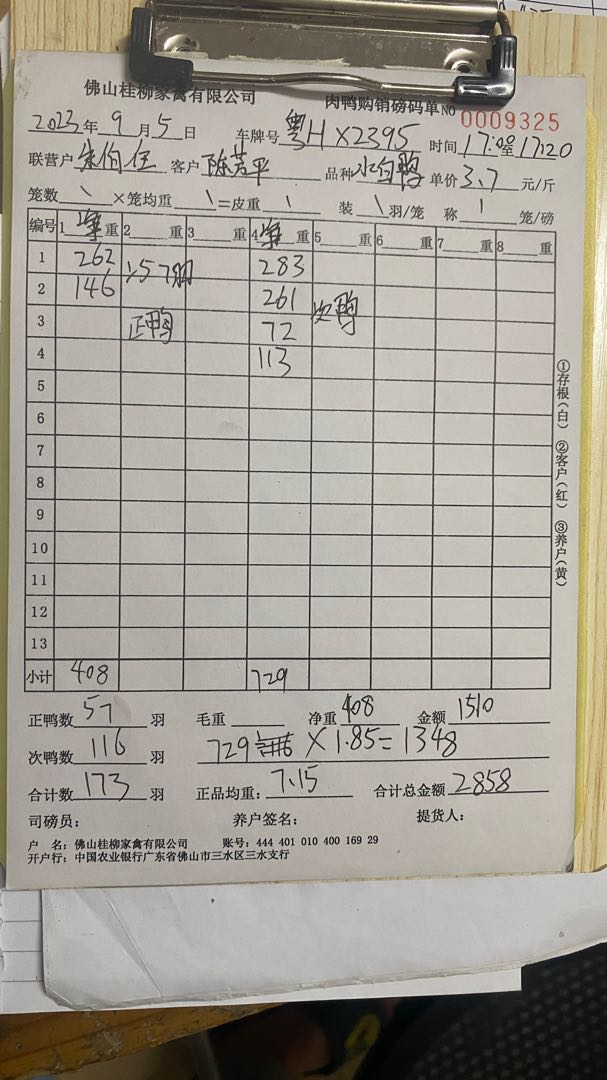 佛山桂柳家禽有限公司 肉鸭购销磅码单 NO 0009325
2023年9月5日 车牌号 粤HX2395 时间 17:00至17:20
联营户 客户 陈芳平 品种 水白鸭 单价 3.7 元/斤
笼数 \ ×笼均重 \ =皮重 \ 装 \ 羽/笼 称 \ 笼/磅
编号 1 净重 2 重 3 重 4 净重 5 重 6 重 7 重 8 重
1 262 57羽 283
2 146 261 次鸭
3 正鸭 72
4 113
5
6
7
8
9
10
11
12
13
小计 408 729
正鸭数 57 羽 毛重 净重 408 金额 1510
次鸭数 116 羽 729 × 1.85 = 1348
合计数 173 羽 正品均重: 7.15 合计总金额 2858
司磅员: 养户签名: 提货人:
户 名: 佛山桂柳家禽有限公司 账号: 444 401 010 400 169 29
开户行: 中国农业银行广东省佛山市三水区三水支行
①存根(白) ②客户(红) ③养户(黄)